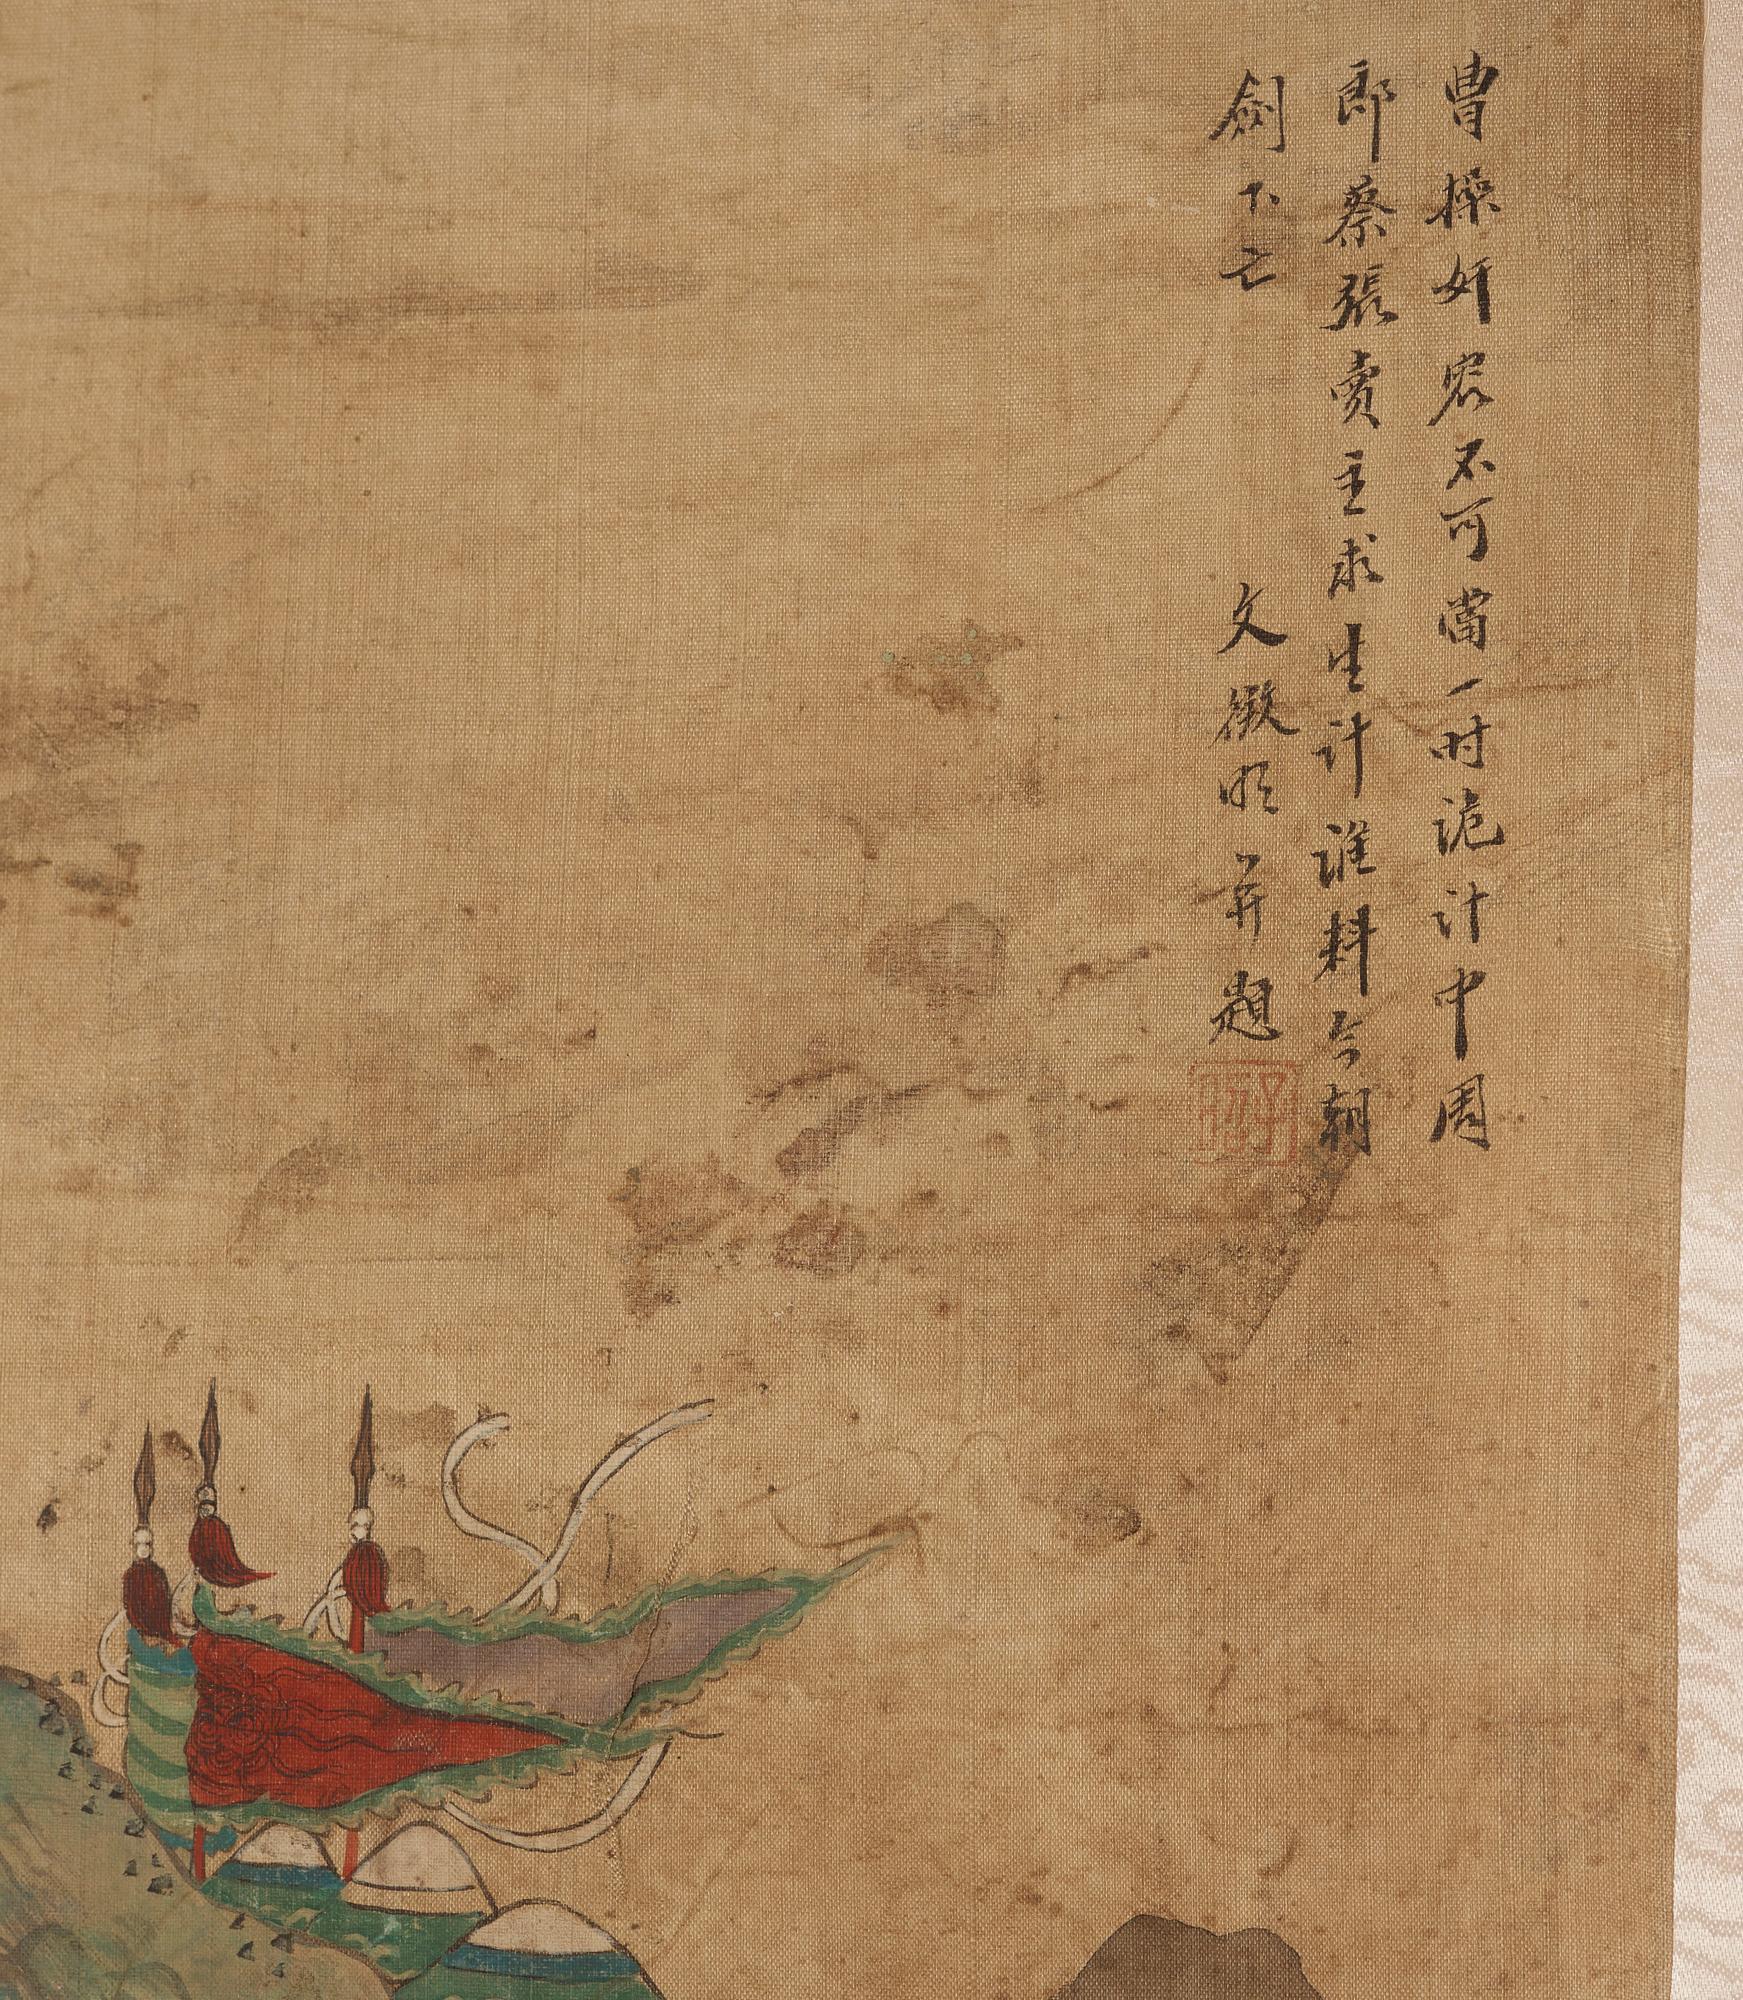 曹操奸宄不可當一时詭计中周
郎蔡張賣主求生计誰料今朝
劍下亡　文徵明并題